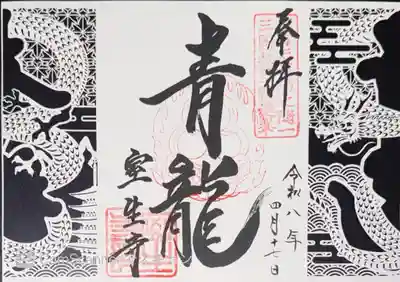 奉拝
青龍
室生寺
令和八年
四月十七日